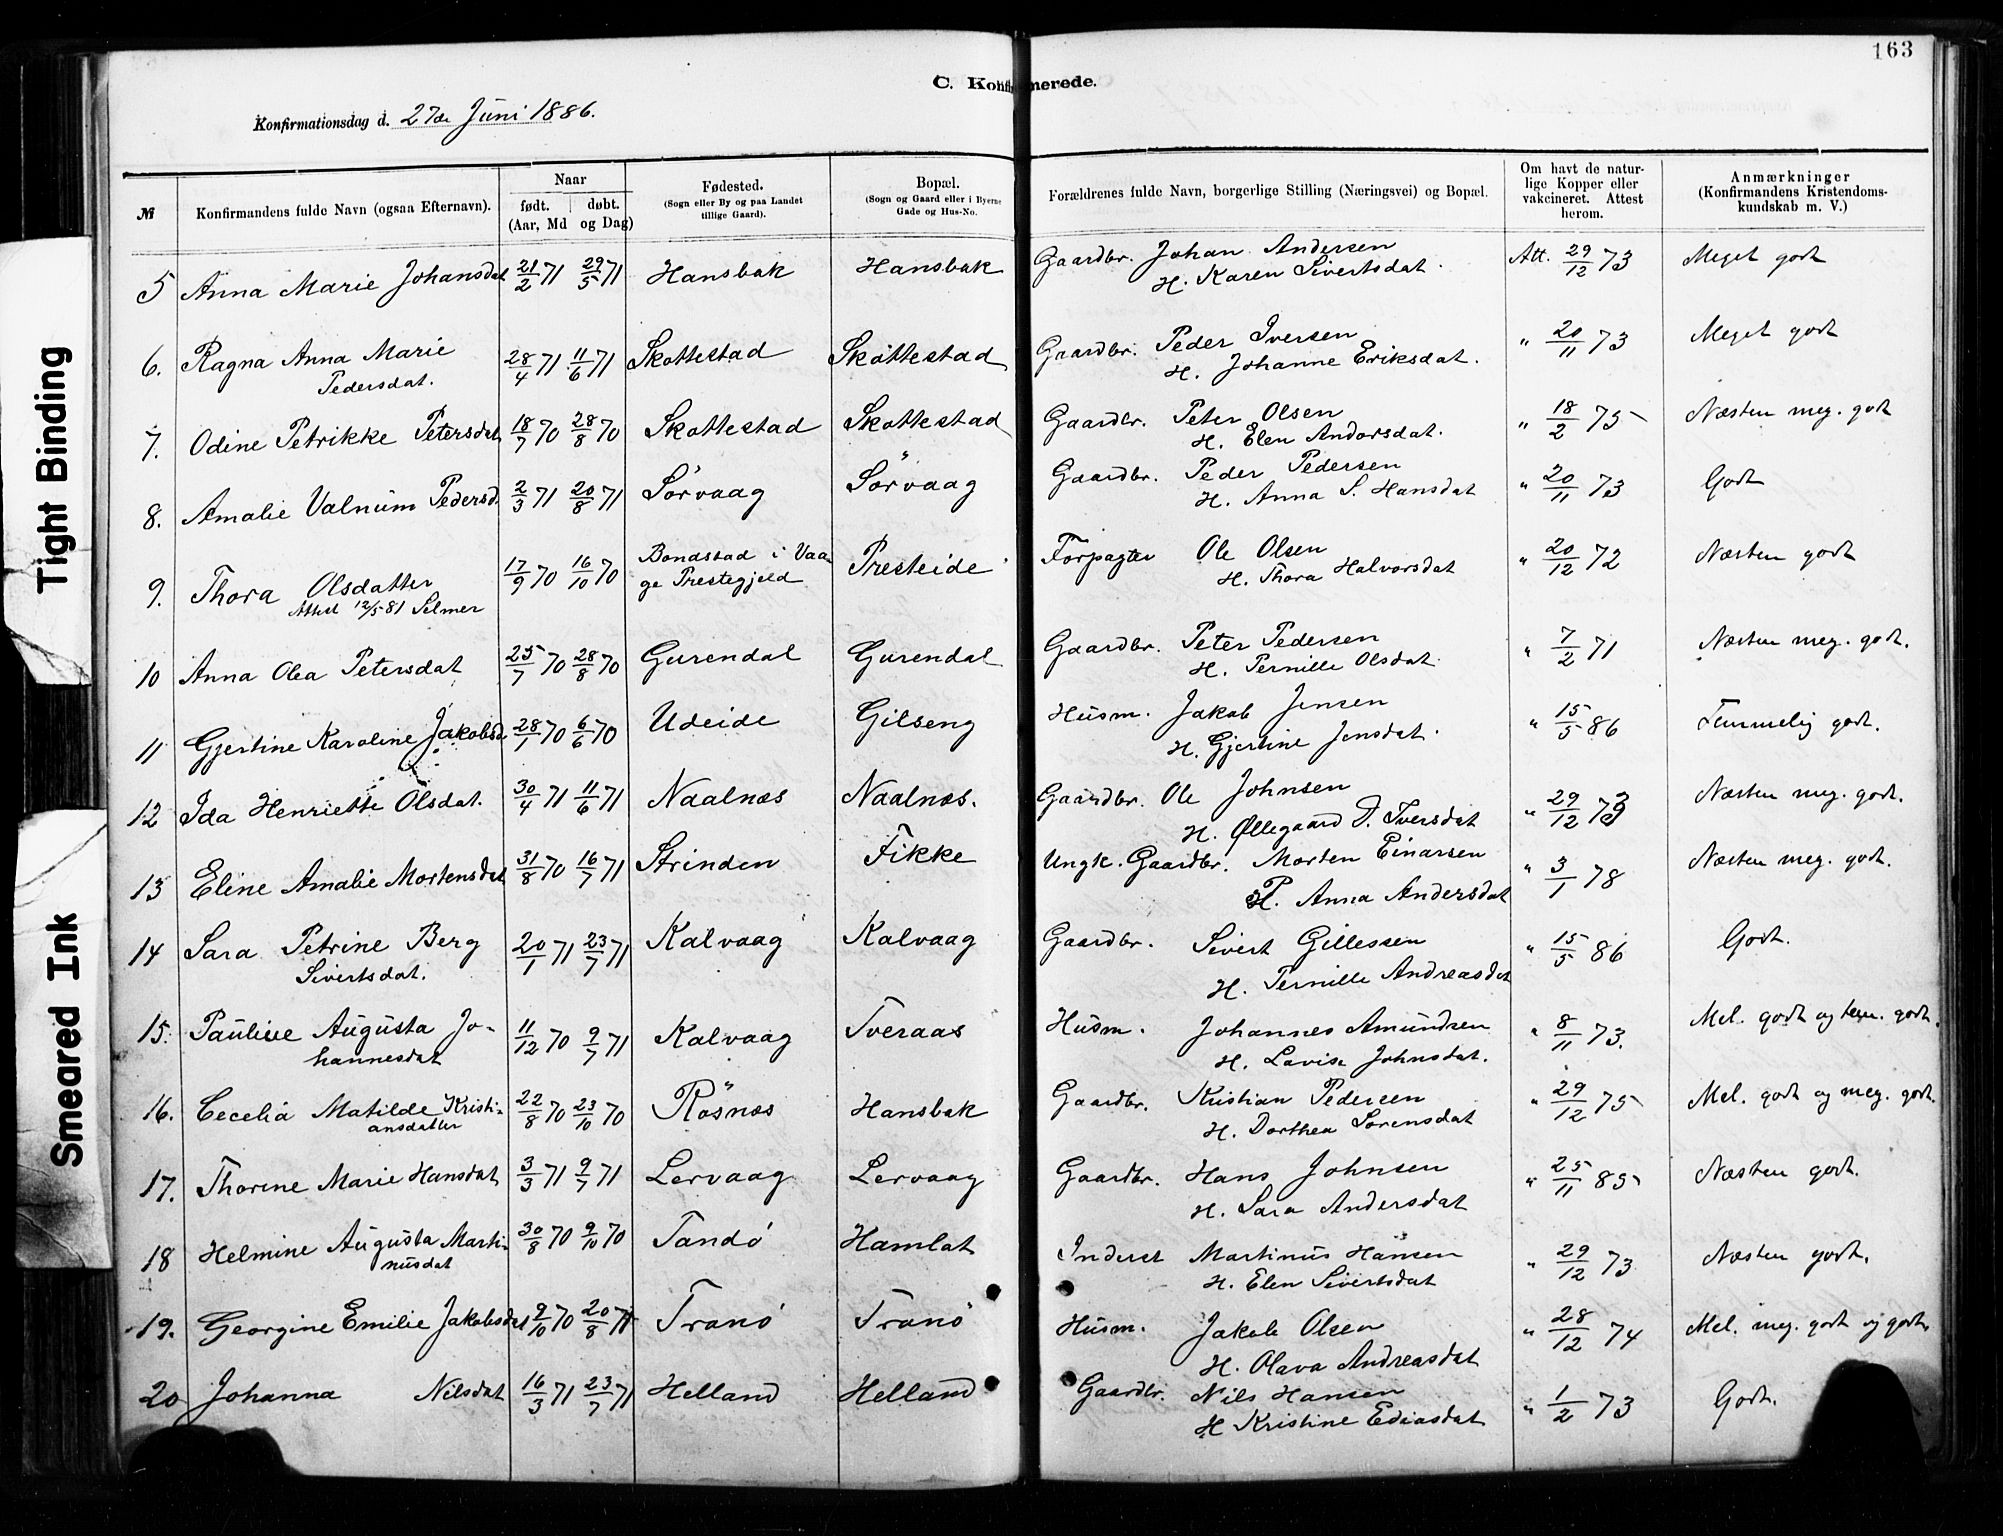 163
C. Konfirmerede.
Konfirmationsdag d. 27de Juni 1886.
№ Konfirmandens fulde Navn (ogsaa Efternavn). Naar født. (Aar, Md døbt. og Dag) Fødested. (Sogn eller By og paa Landet tillige Gaard). Bopæl. (Sogn og Gaard eller i Byerne Gade og Hus-No. Forældrenes fulde Navn, borgerlige Stilling (Næringsvei) og Bopæl. Om havt de naturlige Kopper eller vakcineret. Attest herom. Anmærkninger (Konfirmandens Kristendomskundskab m. V.)
5 Anna Marie Johansdat 21/2 71 29/5 71 Hansbak Hansbak Gaardbr. Johan Andersen Att. 29/12 73 Meget godt
H. Karen Sivertsdat.
6. Ragna Anna Marie 28/4 71 11/6 71 Skottestad Skottestad Gaardbr. Peder Iversen " 20/11 73 Meget godt
Pedersdat. H. Johanne Eriksdat.
7. Odine Petrikke Petersdat 18/7 70 28/8 70 Skottestad Skottestad Gaardbr. Peter Olsen " 18/2 75 Næsten meg. godt
H. Elen Andorsdat.
8. Amalie Valnum Pedersd. 2/3 71 20/8 71 Sørvaag Sörvaag Gaardbr. Peder Pedersen " 20/11 73 Godt
H. Anna S. Hansdat
9. Thora Olsdatter 17/9 70 16/10 70 Bondstad i Vaa- Presteide Forpagter Ole Olsen " 20/12 72 Næsten godt
Attest 12/5 81 Selmer ge Prestegjeld H. Thora Halvorsdat
10 Anna Olea Petersdat 25/7 70 28/8 70 Gurendal Gurendal Gaardbr. Peter Pedersen " 7/2 71 Næsten meg. godt.
H. Pernille Olsdat
11 Gjertine Karoline Jakobsd 28/1 70 6/6 70 Udeide Gilseng Husm. Jakob Jensen " 15/5 86 Temmelig godt.
H. Gjertine Jensdat.
12 Ida Henriette Olsdat. 30/4 71 11/6 71 Naalnæs Naalnæs. Gaardbr. Ole Johnsen " 29/12 73 Næsten meg. godt.
H. Øllegaard D. Iversdat
13 Eline Amalie Mortensdat 31/8 70 16/7 71 Strinden Fikke Ungk. Gaardbr. Morten Einarsen " 3/1 78 Næsten meg. godt.
P. Anna Andersdat
14 Sara Petrine Berg 20/1 71 23/7 71 Kalvaag Kalvaag Gaardbr. Sivert Gillessen " 15/5 86 Godt.
Sivertsdat. H. Pernille Andreasdat
15. Pauline Augusta Jo- 11/12 70 9/7 71 Kalvaag Tveraas Husm. Johannes Amundsen " 8/11 73. Mel. godt og tem. godt.
hannesdat H. Lavise Johnsdat.
16. Cecelia Matilde Kristi- 22/8 70 23/10 70 Rösnæs Hansbak Gaardbr. Kristian Pedersen " 29/12 75 Mel. godt og meg. godt.
ansdatter H. Dorthea Sørensdat
17. Thorine Marie Hansdat 3/3 71 9/7 71 Lervaag Lervaag Gaardbr. Hans Johnsen " 25/11 85 Næsten godt.
H. Sara Andersdat
18 Helmine Augusta Marti- 30/8 70 9/10 70 Tandø Hamlat Inderst Martinus Hansen " 29/12 73 Næsten godt.
nusdat H. Elen Sivertsdat
19. Georgine Emilie Jakobsdat 9/10 70 20/8 71 Tranø Tranø Husm. Jakob Olsen " 28/12 74 Mel. meg. godt og godt.
H. Olava Andreasdat
20 Johanna Nilsdat 16/3 71 23/7 71 Helland Helland Gaardbr. Nils Hansen " 1/2 73 Godt.
H Kristine Ediasdat
Tight Binding
Smeared Ink